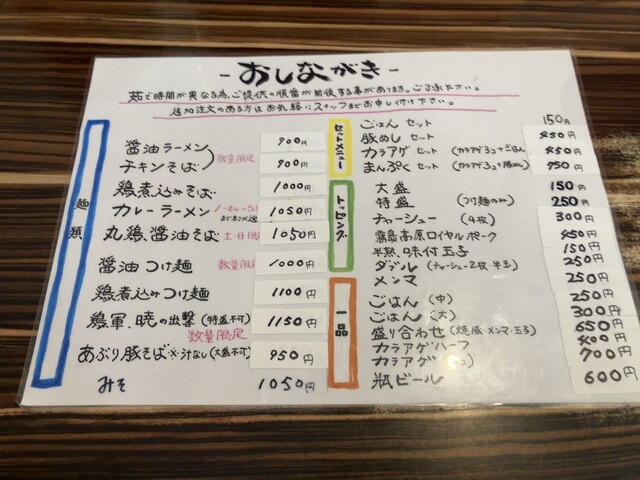 -おしながき-
茹で時間が異なる為、ご提供の順番が前後する事があります。ご了承下さい。
追加注文のある方はお気軽にスタッフまでお申し付け下さい。
麺類
醤油ラーメン 900円
数量限定
チキンそば 900円
鶏煮込みそば 1000円
カレーラーメン 1050円
丸鶏醤油そば 土・日限 1050円
醤油つけ麺 数量限定 1000円
鶏煮込みつけ麺 1100円
鶏軍、暁の出撃 (特盛不可) 1150円
数量限定
あぶり豚そば ※汁なし(大盛不可) 950円
みそ 1050円
セットメニュー
ごはん セット 150円
豚めし セット 350円
カラアゲ セット (カラアゲ3コ+ごはん)
まんぷく セット (カラアゲ3コ+豚めし)
トッピング
大盛 150円
特盛 (つけ麺のみ) 250円
チャーシュー (4枚) 300円
霧島高原ロイヤルポーク
半熟味付玉子 150円
ダブル (チャーシュー2枚 半玉) 250円
メンマ 250円
一品
ごはん (中) 250円
ごはん (大) 300円
盛り合わせ (焼豚・メンマ・玉子) 650円
カラアゲハーフ 400円
カラアゲ 700円
瓶ビール 600円